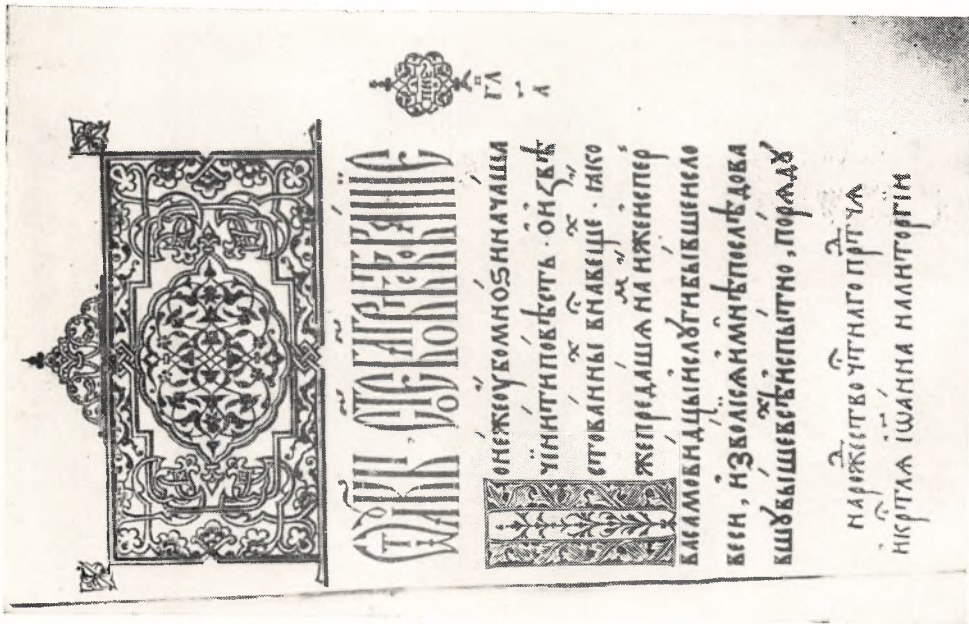 Ѿ Лꙋки, ст҃ое
гл҃
а҃
Понежеоубомноѕиначаша
чинитиповѣсть · оизвѣ
стованныⷯ внаⷭ вещеⷯ · ꙗко
жепредашѧнамъ иженепер
васамовидцыислꙋгибывшеисло
веси, изволисѧимнѣпослѣдова
вшꙋвышевсѣⷯиспытно, порѧдꙋ
нарожество чⷭтнаго прⷣтчѧ
икрⷭтлѧ іѡанна налиторгїи